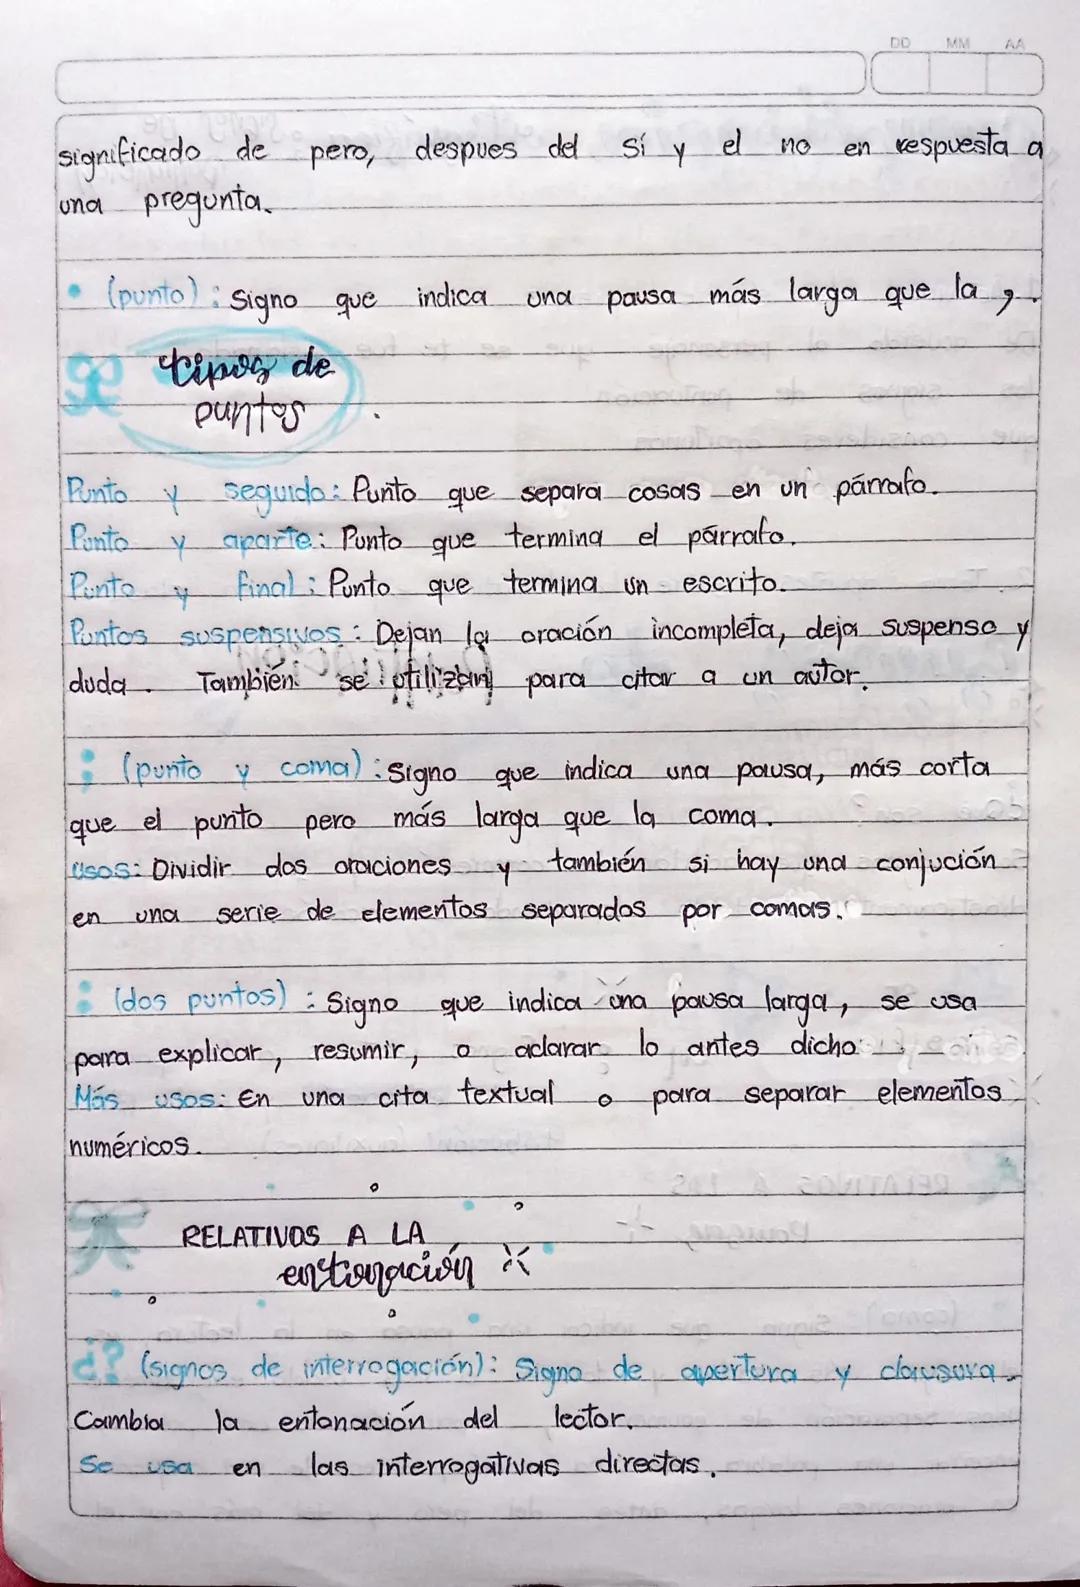 DD MM AA
significado de pero, despues del sí y el no en respuesta a
una pregunta.
• (punto): Signo que indica una pausa más larga que la ,.
tipos de
puntos
Punto y seguido: Punto que separa cosas en un párrafo.
Punto y aparte: Punto que termina el párrafo.
Punto y final: Punto que termina un escrito.
Puntos suspensivos: Dejan la oración incompleta, deja suspenso y
duda. También se utilizan para citar a un autor.
; (punto y coma): Signo que indica una pausa, más corta
que el punto pero más larga que la coma.
Usos: Dividir dos oraciones y también si hay una conjución
en una serie de elementos separados por comas.
: (dos puntos): Signo que indica una pausa larga, se usa
para explicar, resumir, o aclarar lo antes dicho
Más usos: En una cita textual o para separar elementos
numéricos.
RELATIVOS A LA
entonación
¿? (signos de interrogación): Signo de apertura y clausura.
Cambia la entonación del lector.
Se usa en las interrogativas directas.